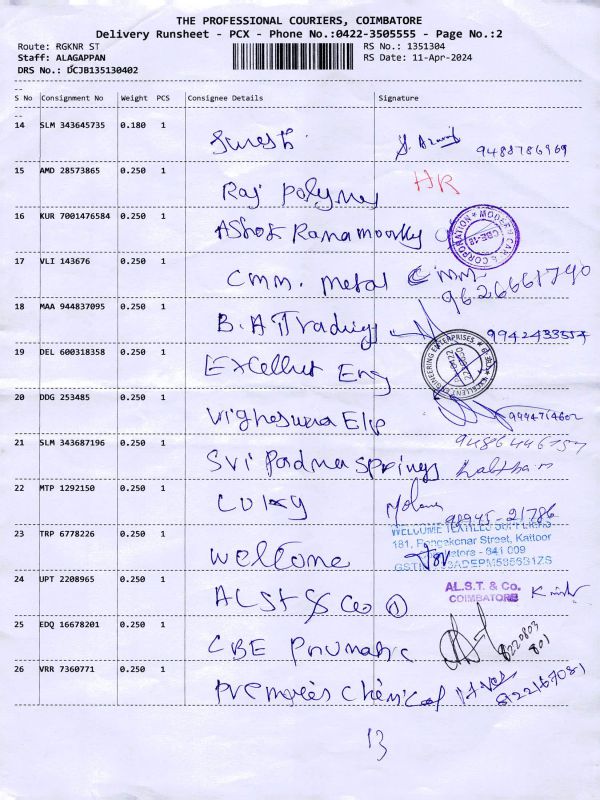 THE PROFESSIONAL COURIERS, COIMBATORE
Delivery Runsheet - PCX - Phone No.:0422-3505555 - Page No.:2
Route: RGKNR ST
RS No.: 1351304
Staff: ALAGAPPAN
RS Date: 11-Apr-2024
DRS No.: DCJB135130402
S No Consignment No Weight PCS Consignee Details Signature
14 SLM 343645735 0.180 1 Suresh 9488786969
15 AMD 28573865 0.250 1 Raj Polymer HR
16 KUR 7001476584 0.250 1 Ashok Ramamoorthy MODERN CAR & CORPORATION CBE-18
17 VLI 143676 0.250 1 Cmm. Metal Cmm 9626661790
18 MAA 944837095 0.250 1 B.A Trading 9942433554
19 DEL 600318358 0.250 1 Excellent Eng EXCELLENT ENGINEERING ENTERPRISES
20 DDG 253485 0.250 1 Vigneswara 9994714602
21 SLM 343687196 0.250 1 Sri Padma Springs
22 MTP 1292150 0.250 1 98945-21786
23 TRP 6778226 0.250 1 Wellcome WELCOME TEXTILES SUPPLIERS
181, Street, Kattoor
641 009
24 UPT 2208965 0.250 1 ALST & Co 1 AL.S.T. & Co.
COIMBATORE
25 EDQ 16678201 0.250 1 CBE Pnumatic 8220803
801
26 VRR 7360771 0.250 1 Premores Chemical 8122167081
13